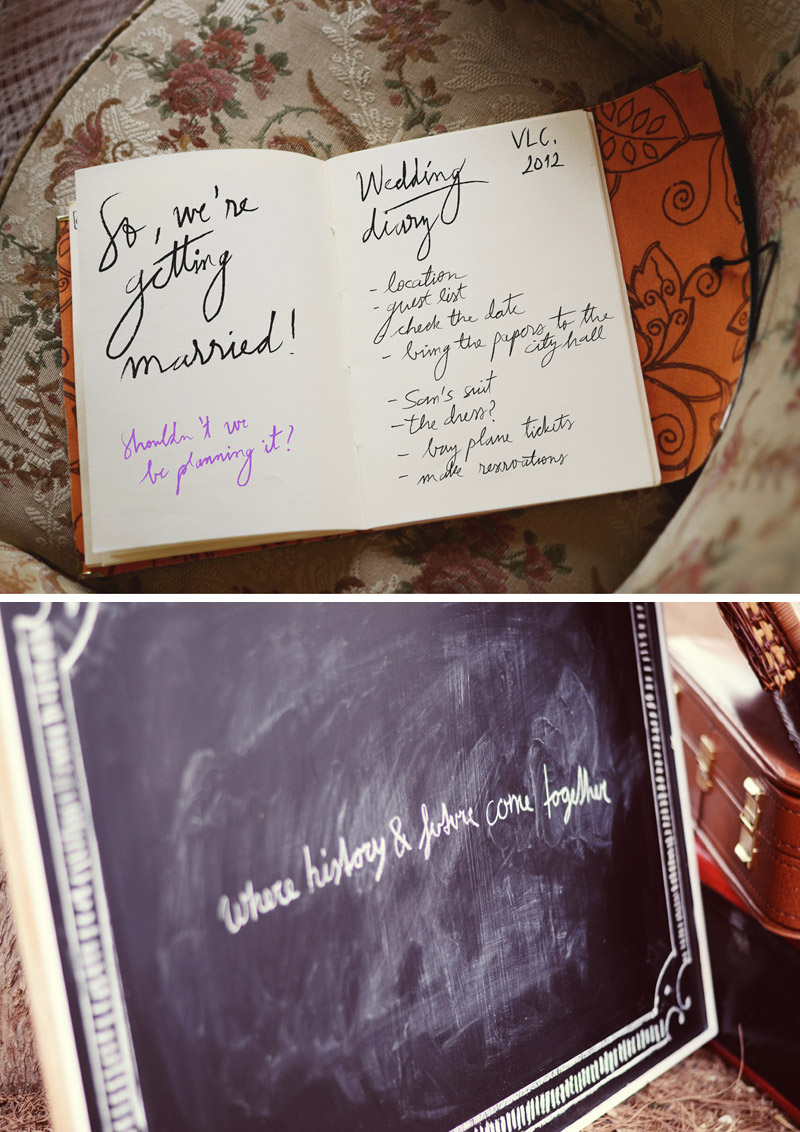 So, we're
getting
married!
Shouldn't we
be planning it?
VLC,
2012
Wedding
diary
- location
- guest list
check the date
- bring the papers to the
city hall
- Sam's suit
- the dress?
- buy plane tickets
- make reservations
Where history & future come together